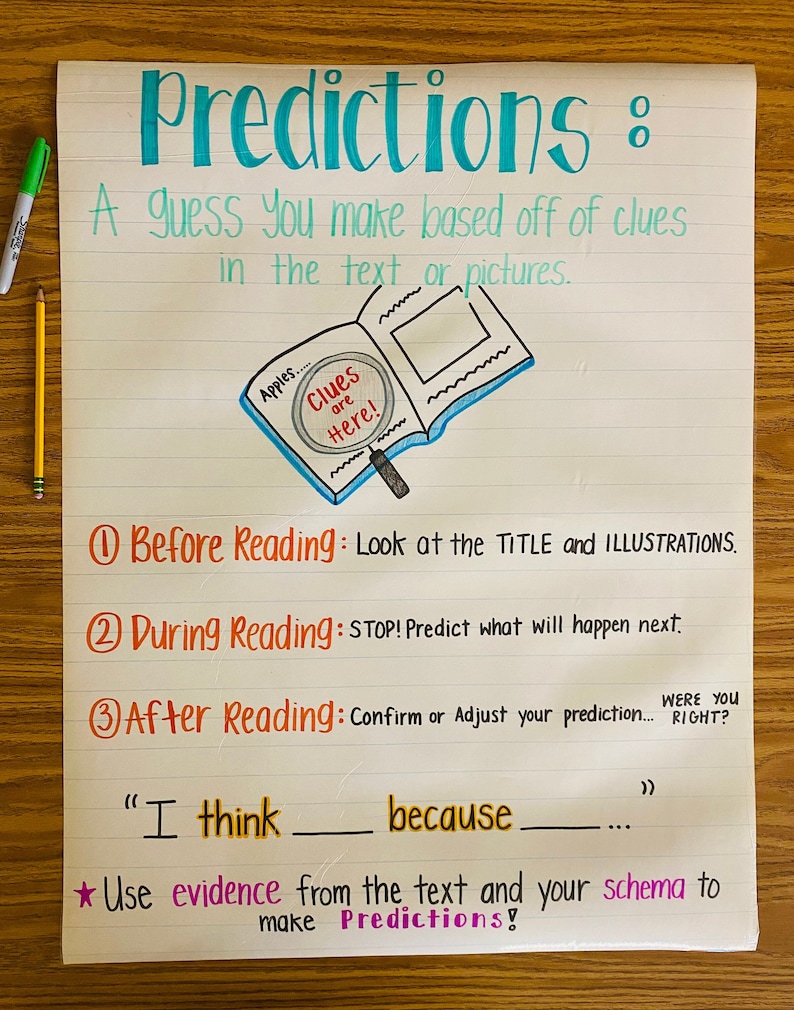 Predictions:
A guess you make based off of clues
in the text or pictures.
Apples.....
Clues
are
Here!
① Before Reading: Look at the TITLE and ILLUSTRATIONS.
② During Reading: STOP! Predict what will happen next.
③ After Reading: Confirm or Adjust your prediction... WERE YOU
RIGHT?
"I think ____ because ____..."
★ Use evidence from the text and your schema to
make Predictions!
Sharpie